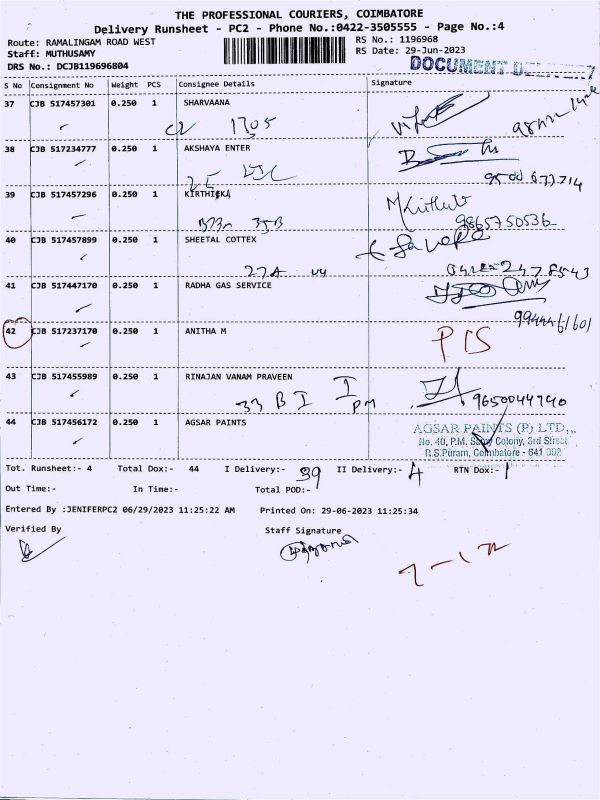 THE PROFESSIONAL COURIERS, COIMBATORE
Delivery Runsheet - PC2 - Phone No.:0422-3505555 - Page No.:4
Route: RAMALINGAM ROAD WEST
RS No.: 1196968
Staff: MUTHUSAMY
RS Date: 29-Jun-2023
DRS No.: DCJB119696804
DOCUMENT
S No Consignment No Weight PCS Consignee Details Signature
37 CJB 517457301 0.250 1 SHARVAANA
1705
38 CJB 517234777 0.250 1 AKSHAYA ENTER
39 CJB 517457296 0.250 1 KIRTHIKA
35B
9865750536
40 CJB 517457899 0.250 1 SHEETAL COTTEX
27A
41 CJB 517447170 0.250 1 RADHA GAS SERVICE
42 CJB 517237170 0.250 1 ANITHA M
43 CJB 517455989 0.250 1 RINAJAN VANAM PRAVEEN
33 B I I PM
9650044740
44 CJB 517456172 0.250 1 AGSAR PAINTS
AGSAR PAINTS (P) LTD.,
No. 40, P.M. Samy Colony, 3rd Street
R.S.Puram, Coimbatore - 641 002
Tot. Runsheet:- 4 Total Dox:- 44 I Delivery:- 39 II Delivery:- 4 RTN Dox:- 1
Out Time:- In Time:- Total POD:-
Entered By :JENIFERPC2 06/29/2023 11:25:22 AM Printed On: 29-06-2023 11:25:34
Verified By Staff Signature